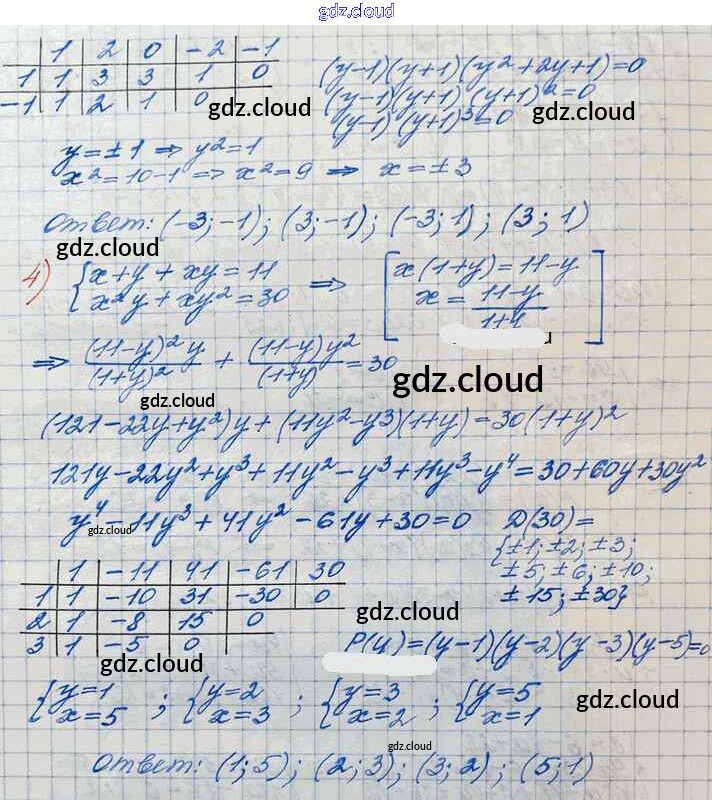 gdz.cloud
1 2 0 -2 -1
1 1 3 3 1 0
-1 1 2 1 0
gdz.cloud
(y-1)(y+1)(y²+2y+1)=0
(y-1)(y+1)(y+1)²=0
(y-1)(y+1)³=0
gdz.cloud
y=±1 ⇒ y²=1
x²=10-1 ⇒ x²=9 ⇒ x=±3
Ответ: (-3;-1); (3;-1); (-3;1); (3;1)
gdz.cloud
4) {x+y+xy=11
x²y+xy²=30 ⇒
[x(1+y)=11-y
x=(11-y)/(1+y)]
⇒ (11-y)²y/(1+y)² + (11-y)y²/(1+y) =30
gdz.cloud
gdz.cloud
(121-22y+y²)y+(11y²-y3)(1+y)=30(1+y)²
121y-22y²+y³+11y²-y³+11y³-y⁴=30+60y+30y²
y⁴-11y³+41y²-61y+30=0
gdz.cloud
D(30)=
{±1;±2;±3;
±5;±6;±10;
±15;±30}
1 -11 41 -61 30
1 1 -10 31 -30 0
2 1 -8 15 0
3 1 -5 0
gdz.cloud
gdz.cloud
gdz.cloud
P(y)=(y-1)(y-2)(y-3)(y-5)=0
{y=1
x=5 ; {y=2
x=3 ; {y=3
x=2 ; {y=5
x=1
gdz.cloud
gdz.cloud
Ответ: (1;5); (2;3); (3;2); (5;1)